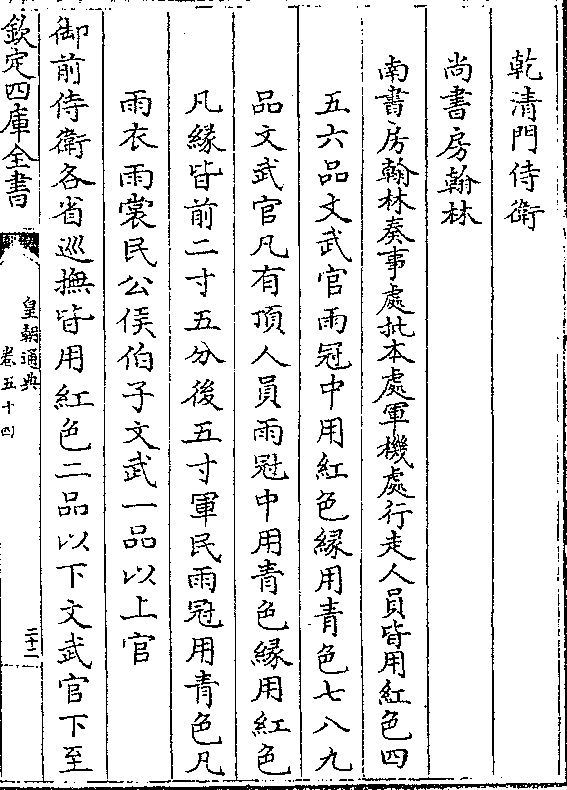 乾清門侍衛
尚書房翰林
南書房翰林奏事處批本處軍機處行走人員皆用紅色四
五六品文武官雨冠中用紅色緣用青色七八九
品文武官凡有頂人員雨冠中用青色緣用紅色
凡緣皆前二寸五分後五寸軍民雨冠用青色凡
雨衣雨裳民公侯伯子文武一品以上官
御前侍衛各省巡撫皆用紅色二品以下文武官下至
欽定四庫全書
皇朝通典
卷五十四
二十二